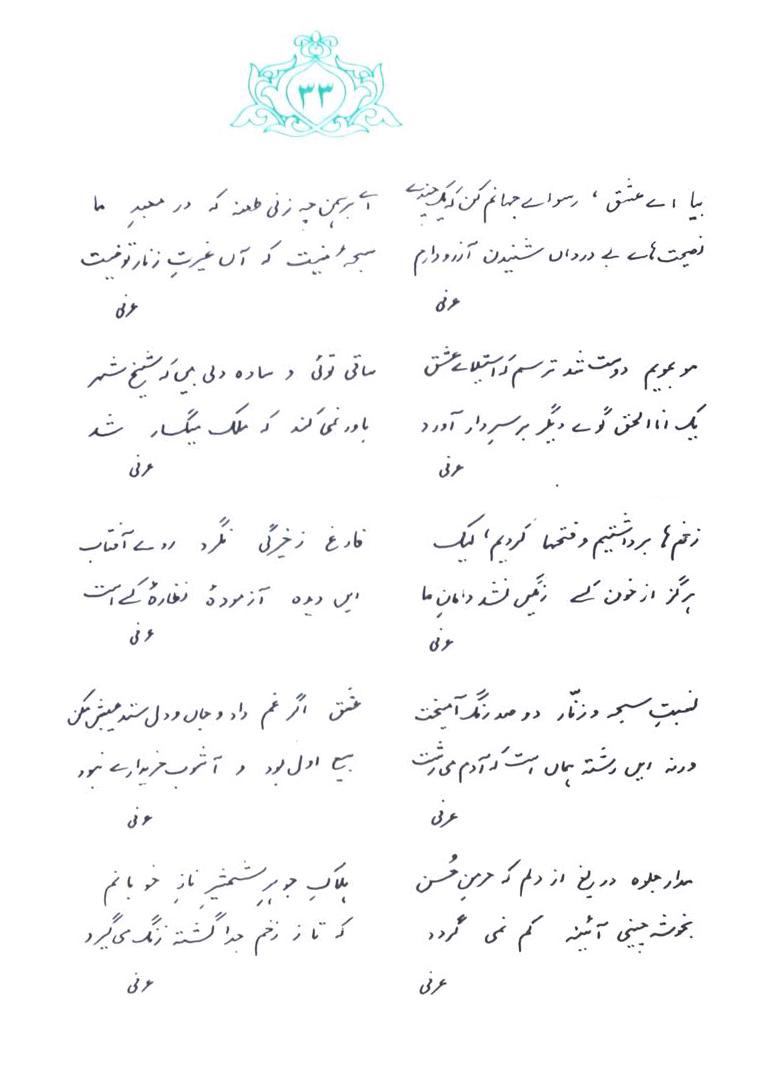 ۳۳
بیا اے عشق، رسواے جہانم کن کہ یک چندے
نصیحت ہاے بے درداں شنیدن آرزو دارم
عرفی
اے برہمن چہ زنی طعنہ کہ در معبدِ ما
سبحہ‌ٔ نیست کہ آں غیرتِ زنارِ تو نیست
عرفی
مو بمویم دوست شد ترسم کہ استیلاے عشق
یک انا الحق گوے دیگر بر سرِ دار آورد
عرفی
ساقی توئی و سادہ دلی بیں کہ شیخِ شہر
باور نمی کند کہ ملک میگسار شد
عرفی
زخم ہا برداشتیم و فتحہا کردیم، لیک
ہرگز از خونِ کسے رنگیں نشد دامانِ ما
عرفی
فارغ ز خیرگی نگرد روے آفتاب
ایں دیدہ آزمودۂ نظارۂ کسے است
عرفی
نسبتِ سبحہ و زنّار دو صد رنگ آمیخت
ورنہ ایں رشتہ ہماں است کہ آدم می رشت
عرفی
عشق اگر غم داد و جاں و دل ستد عیبش مکن
بیع اول بود و آشوبِ خریدارے نبود
عرفی
مدار جلوہ دریغ از دلم کہ خرمنِ حُسن
بخوشہ چینیِ آئینہ کم نمی گردد
عرفی
ہلاکِ جوہرِ شمشیرِ نازِ خوبانم
کہ تا ز زخم جدا گشتہ زنگ می گیرد
عرفی